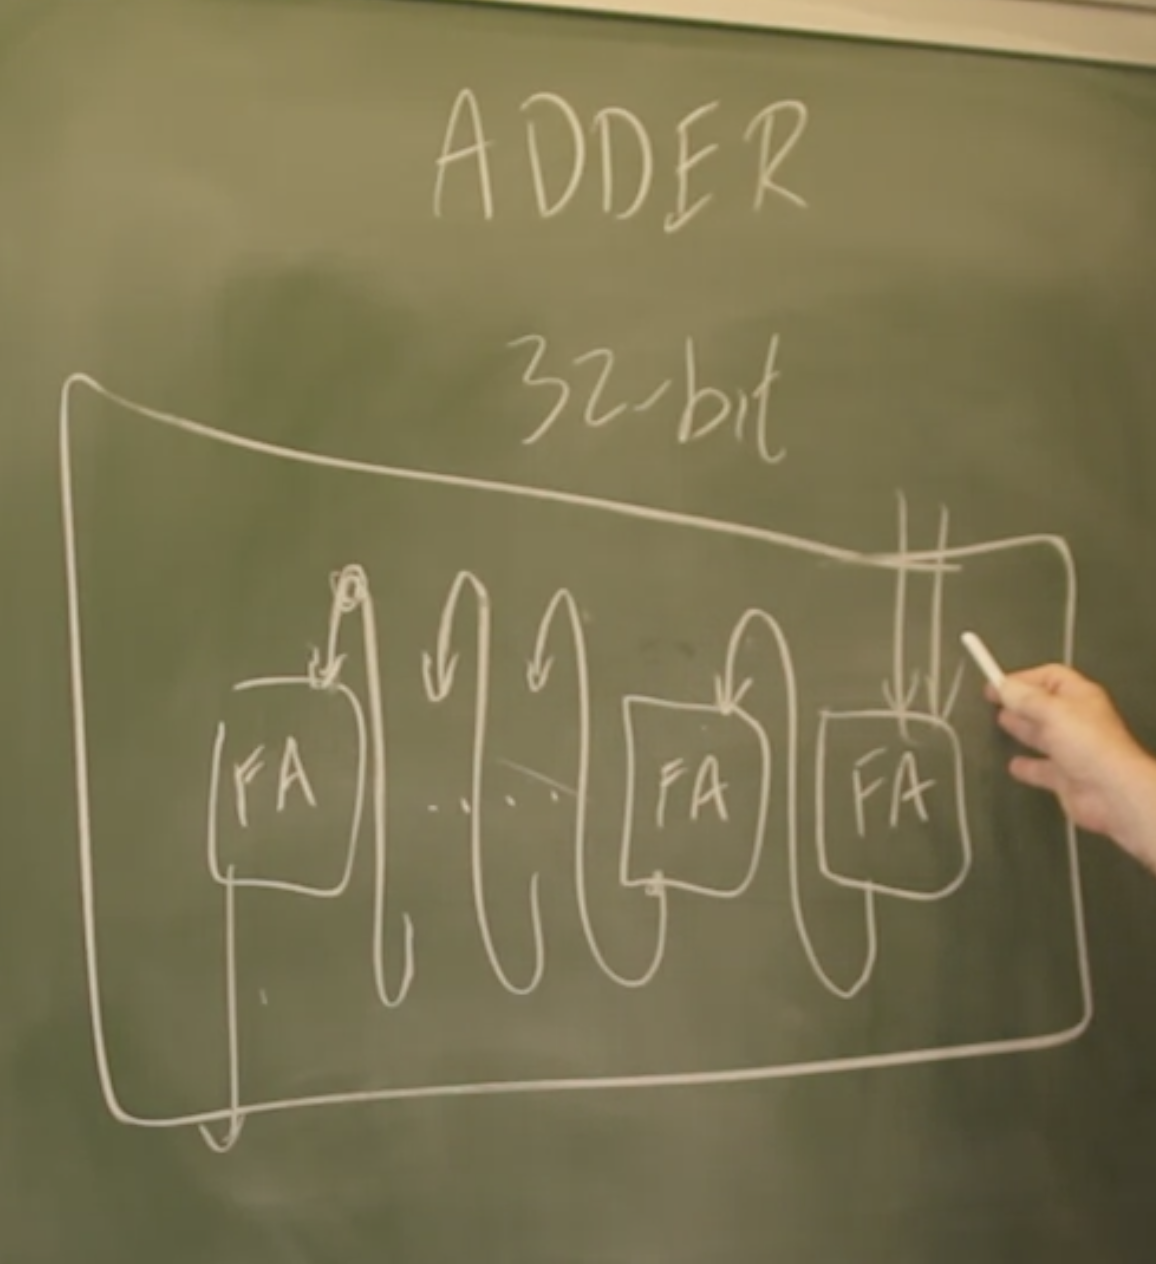 ADDER
32-bit
FA .... FA FA